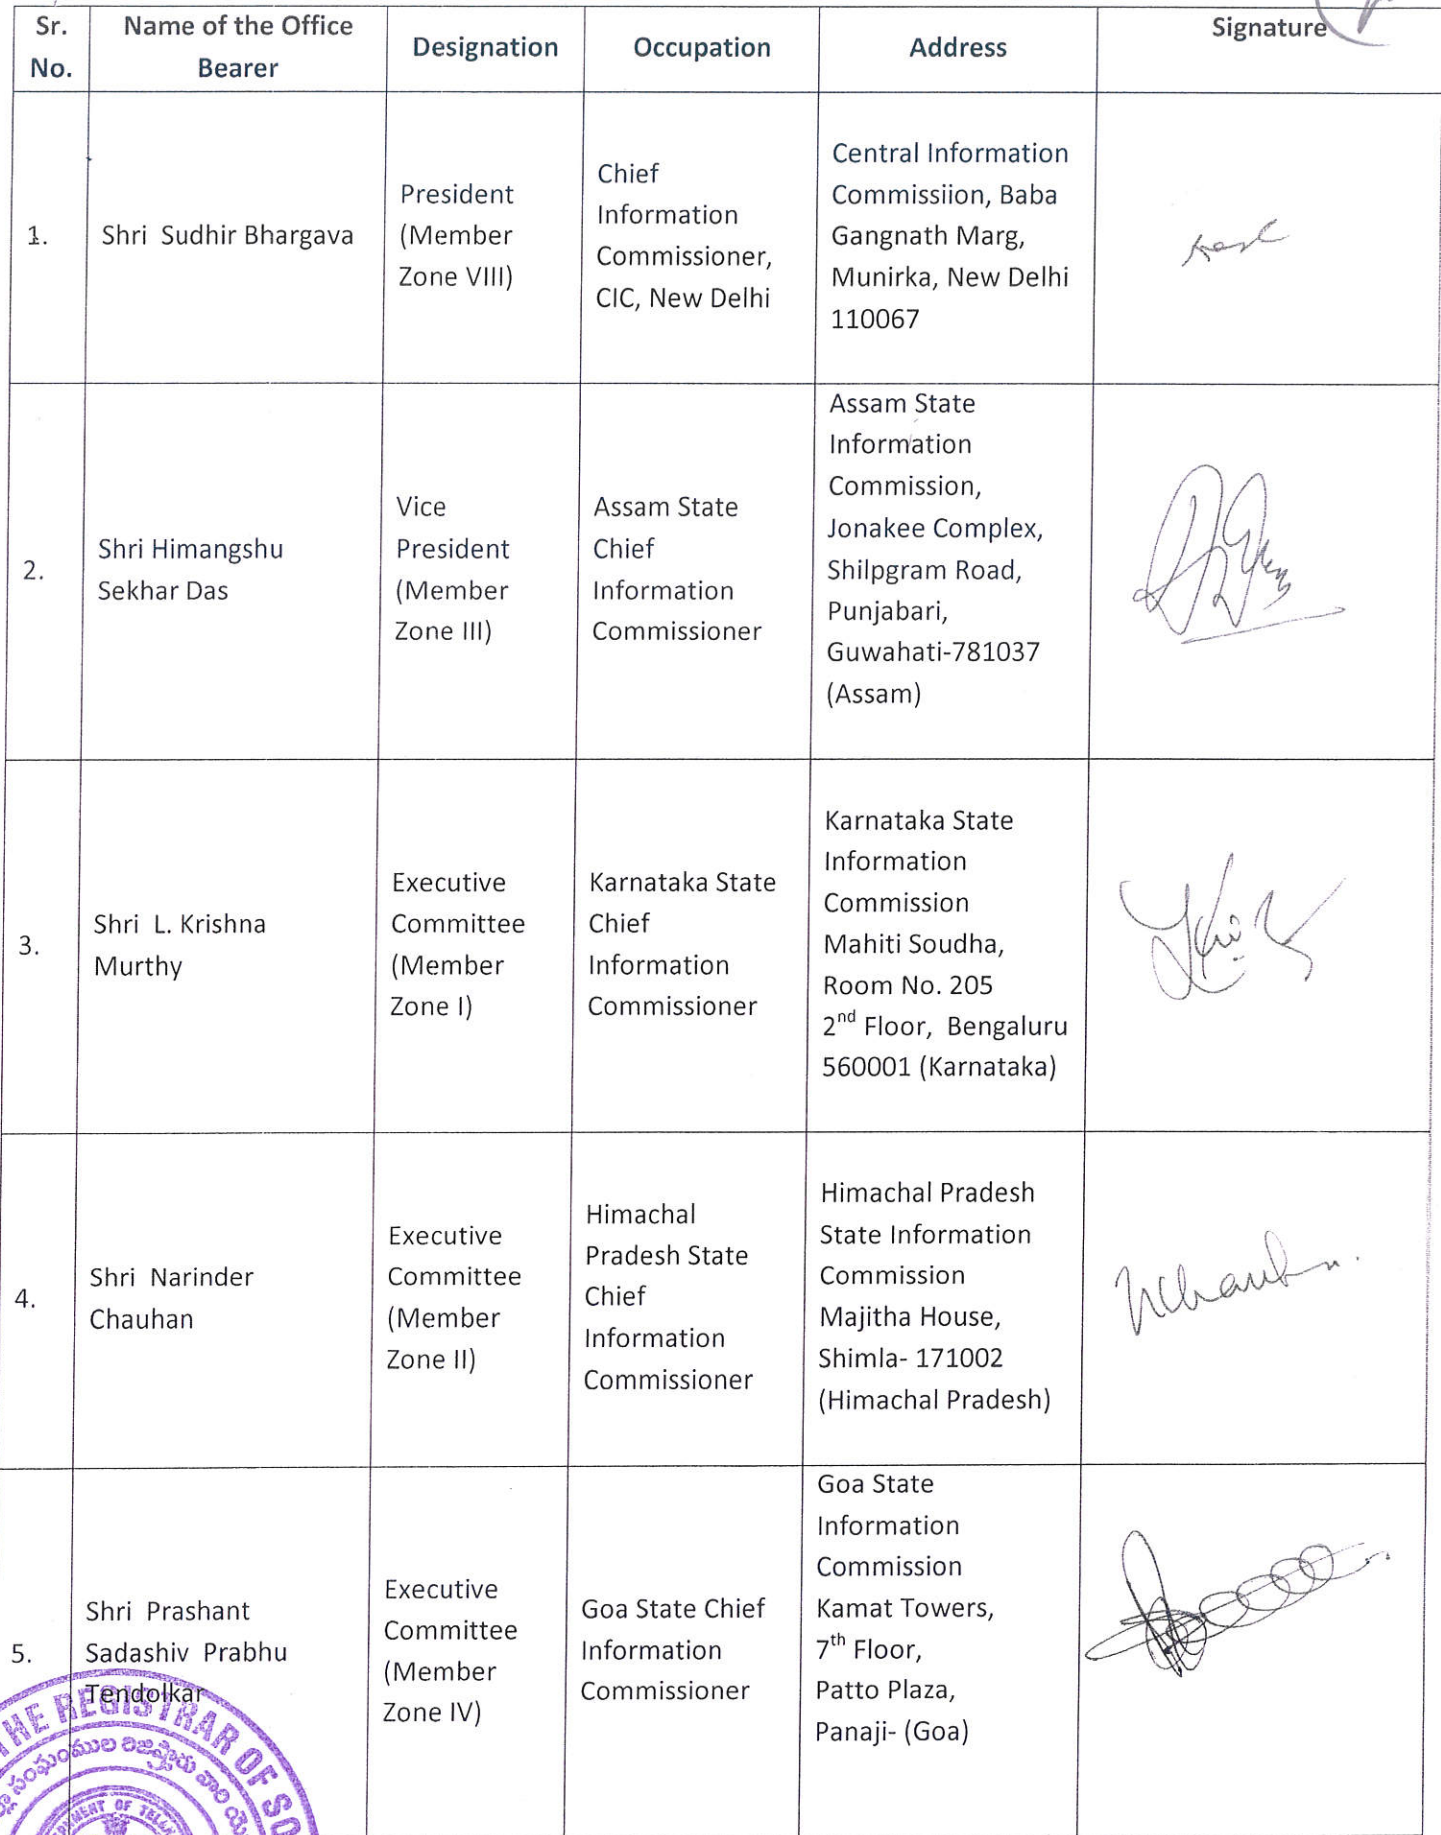 Sr. No.
Name of the Office Bearer
Designation
Occupation
Address
Signature
1.
Shri Sudhir Bhargava
President
(Member
Zone VIII)
Chief
Information
Commissioner,
CIC, New Delhi
Central Information
Commissiion, Baba
Gangnath Marg,
Munirka, New Delhi
110067
2.
Shri Himangshu
Sekhar Das
Vice
President
(Member
Zone III)
Assam State
Chief
Information
Commissioner
Assam State
Information
Commission,
Jonakee Complex,
Shilpgram Road,
Punjabari,
Guwahati-781037
(Assam)
3.
Shri L. Krishna
Murthy
Executive
Committee
(Member
Zone I)
Karnataka State
Chief
Information
Commissioner
Karnataka State
Information
Commission
Mahiti Soudha,
Room No. 205
2nd Floor, Bengaluru
560001 (Karnataka)
4.
Shri Narinder
Chauhan
Executive
Committee
(Member
Zone II)
Himachal
Pradesh State
Chief
Information
Commissioner
Himachal Pradesh
State Information
Commission
Majitha House,
Shimla- 171002
(Himachal Pradesh)
NChauhan.
5.
Shri Prashant
Sadashiv Prabhu
Tendolkar
Executive
Committee
(Member
Zone IV)
Goa State Chief
Information
Commissioner
Goa State
Information
Commission
Kamat Towers,
7th Floor,
Patto Plaza,
Panaji- (Goa)
THE REGISTRAR OF
OF